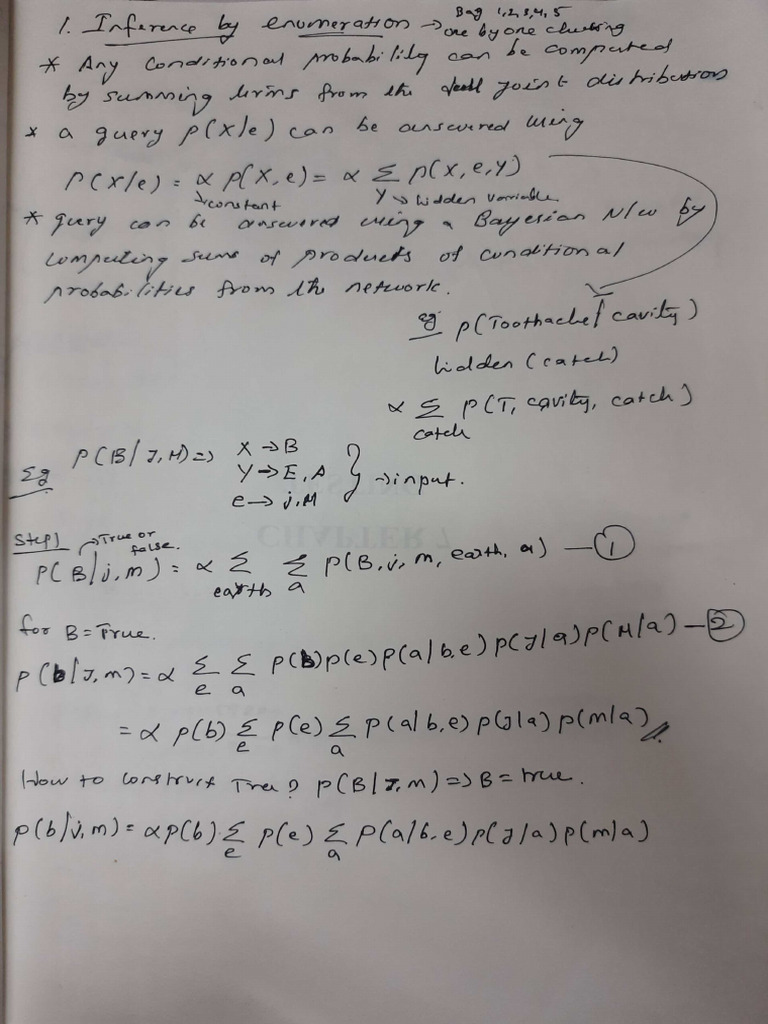 Bag 1,2,3,4,5
1. Inference by enumeration → one by one checking
* Any conditional probability can be computed
by summing terms from the full joint distribution
* a query P(X/e) can be answered using
P(X/e) = α P(X,e) = α Σ P(X,e,Y)
→constant Y→ hidden variable
* query can be answered using a Bayesian N/w by
computing sums of products of conditional
probabilities from the network.
eg P(Toothache/cavity)
hidden (catch)
α Σ P(T, cavity, catch)
catch
Eg P(B/J,M) => X → B
Y → E, A
e → j, M } → input.
Step 1 → True or
false.
P(B/j,m) = α Σ Σ P(B, j, m, earth, a) — ①
earth a
for B = True.
P(b/J,m) = α Σ Σ P(b) P(e) P(a/b,e) P(J/a) P(M/a) — ②
e a
= α P(b) Σ P(e) Σ P(a/b,e) P(J/a) P(m/a)
e a
How to construct Tree? P(B/J,m) => B = true.
P(b/j,m) = αP(b) Σ P(e) Σ P(a/b,e) P(J/a) P(m/a)
e a